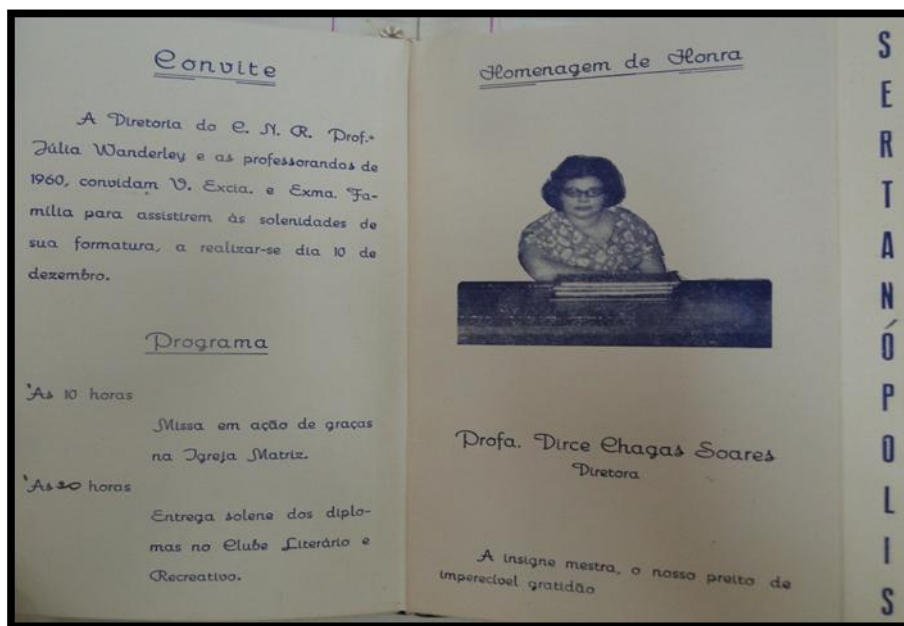 Convite
A Diretoria do C. N. R. Prof.ª
Júlia Wanderley e as professorandas de
1960, convidam V. Excia. e Exma. Fa-
mília para assistirem às solenidades de
sua formatura, a realizar-se dia 10 de
dezembro.
Programa
'As 10 horas
Missa em ação de graças
na Igreja Matriz.
'As 20 horas
Entrega solene dos diplo-
mas no Clube Literário e
Recreativo.
Homenagem de Honra
Profa. Dirce Chagas Soares
Diretora
A insigne mestra, o nosso preito de
imperecível gratidão
SERTANÓPOLIS